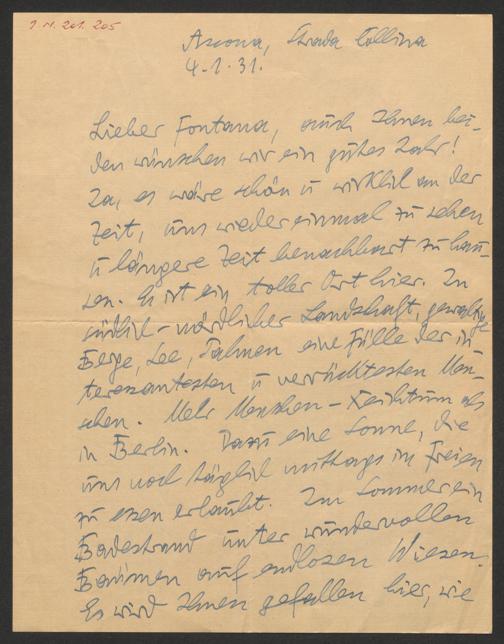 I.N. 201.205
Ascona, Strada Collina
4.1.31.
Lieber Fontana, auch Ihnen bei-
den wünschen wir ein gutes Jahr!
Ja, es wäre schön u wirklich an der
Zeit, uns wieder einmal zu sehen
u längere Zeit benachbart zu hau-
sen. Es ist ein toller Ort hier. In
südlich-nördlicher Landschaft, gewaltige
Berge, See, Palmen eine Fülle der in
teressantesten u verrücktesten Men-
schen. Mehr Menschen-Reichtum als
in Berlin. Dazu eine Sonne, die
uns noch täglich mittags im Freien
zu essen erlaubt. Im Sommer ein
Badestrand unter wundervollen
Bäumen auf endlosen Wiesen.
Es wird Ihnen gefallen hier, wie